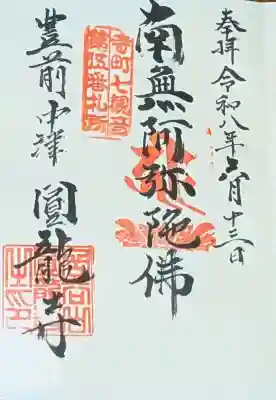 奉拝 令和八年六月十三日
南無阿弥陀佛
寺町七観音
第五番札所
豊前中津 圓龍寺